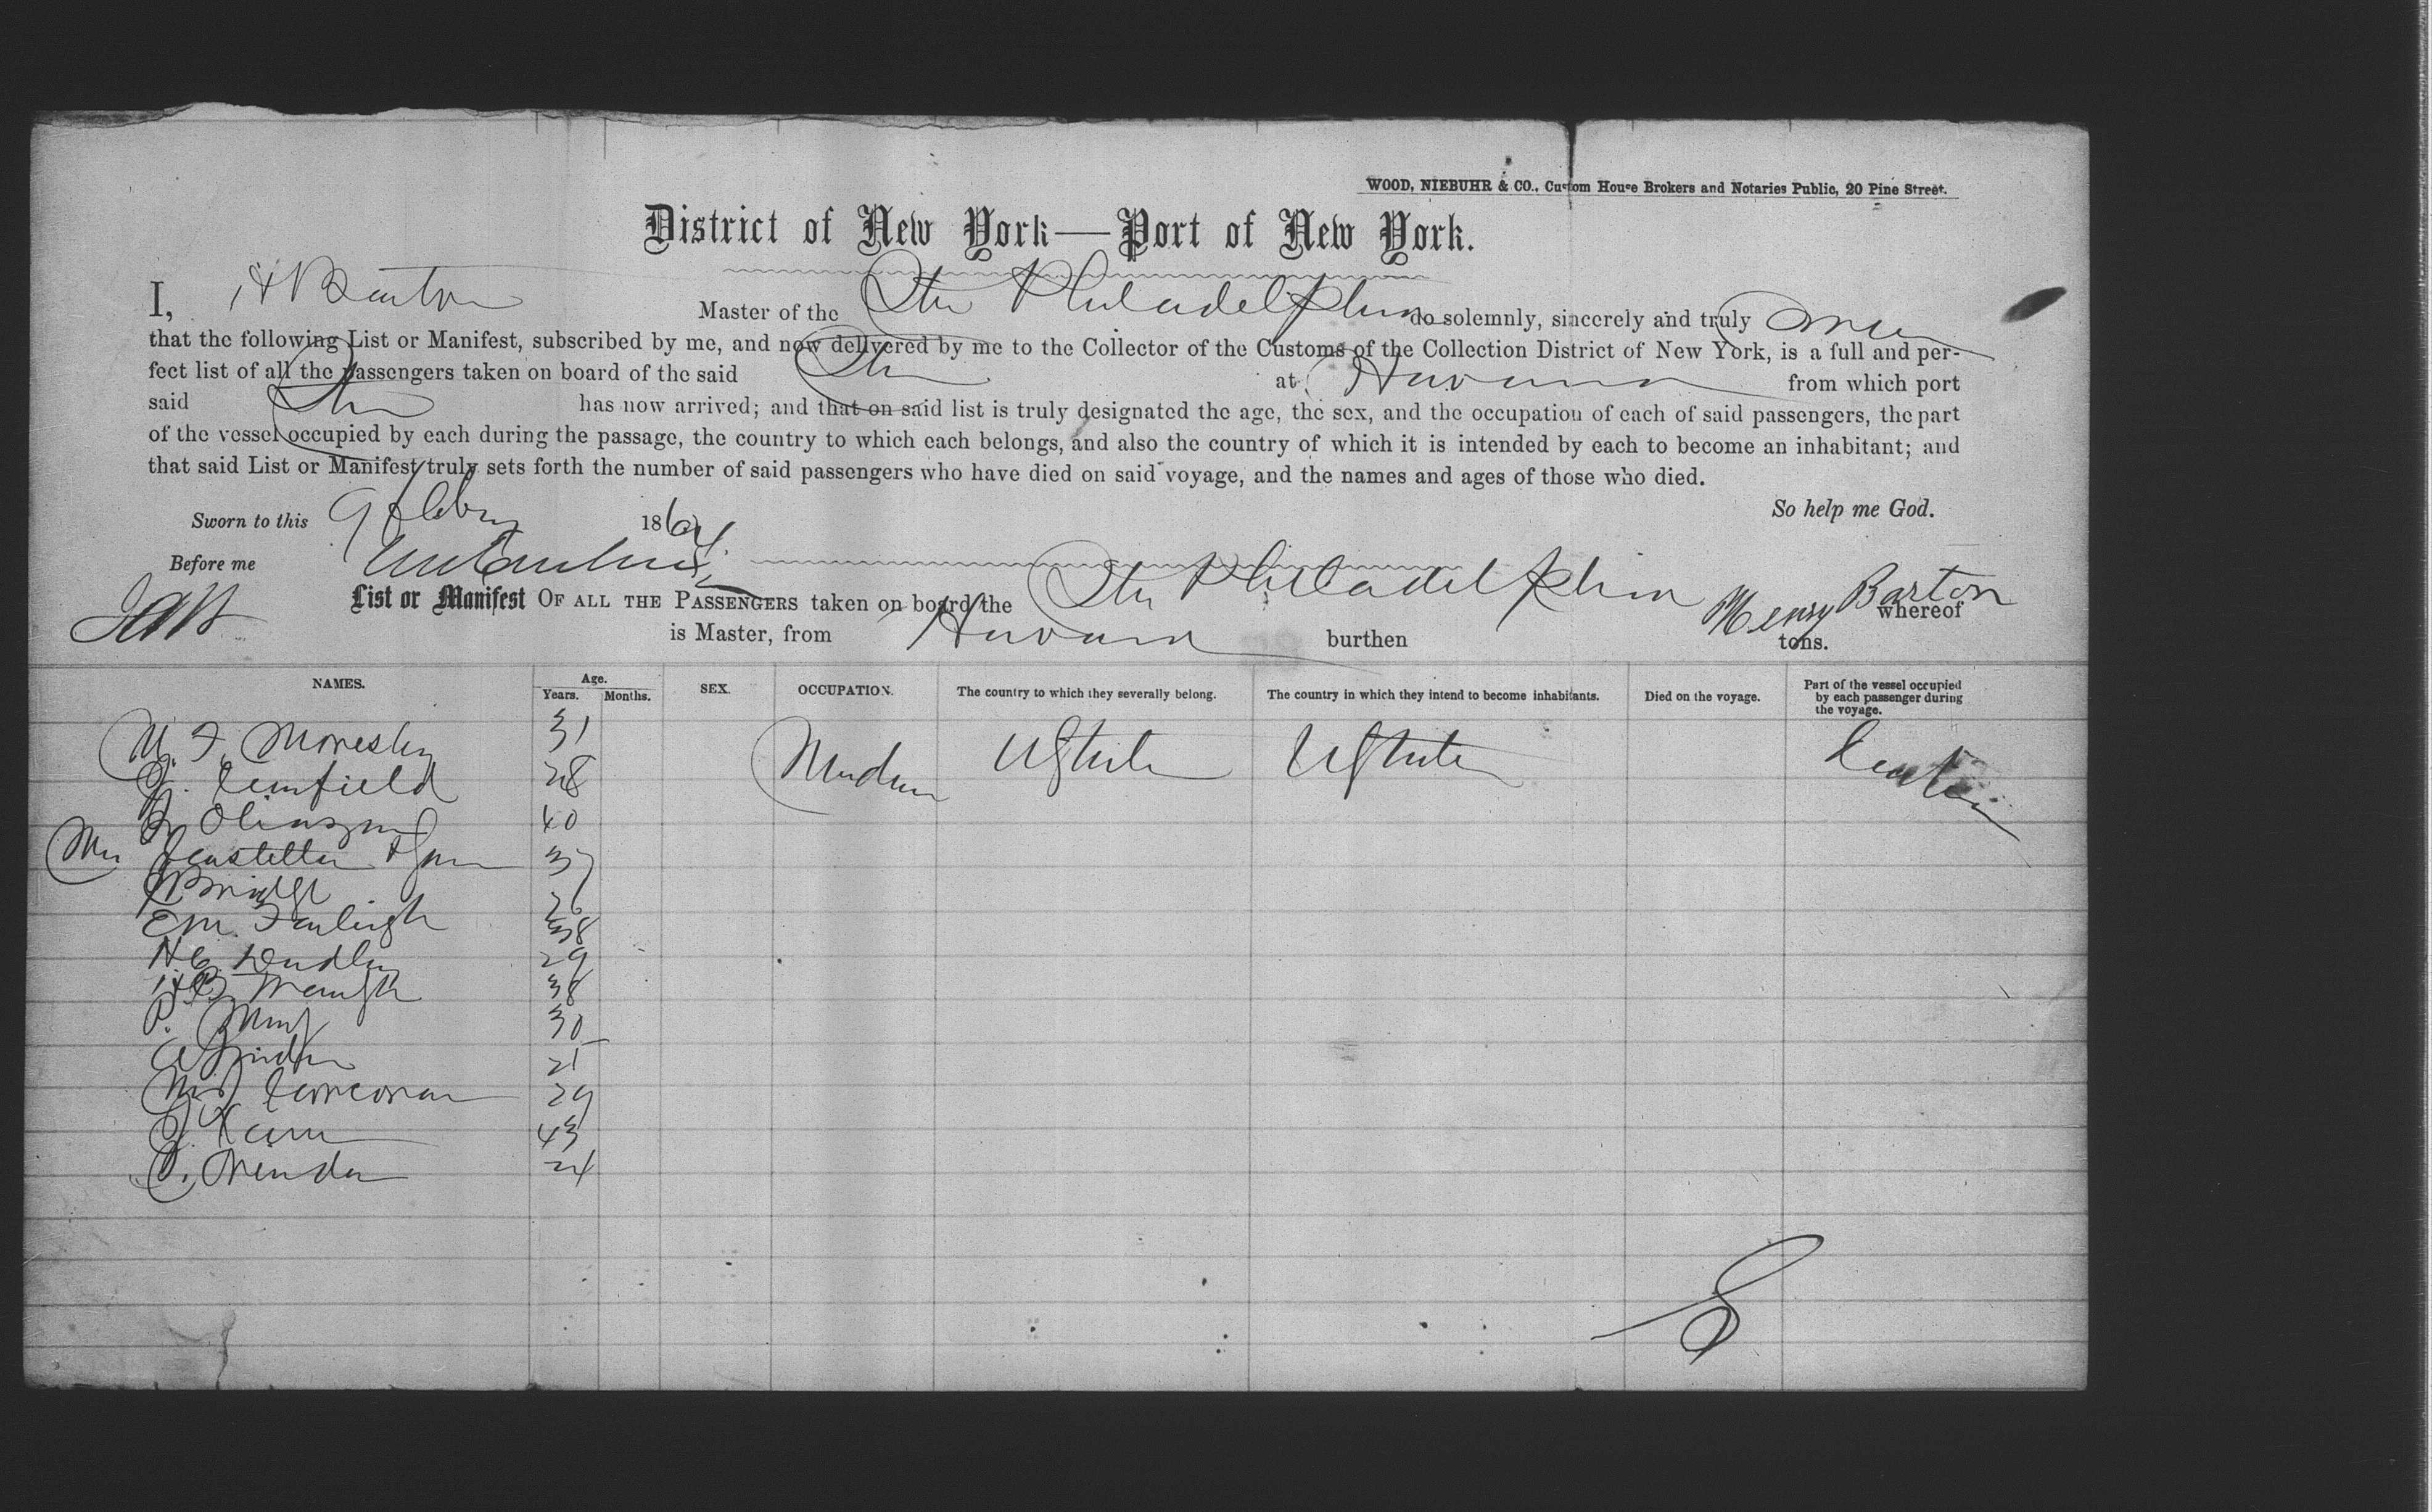 WOOD, NIEBUHR & CO., Custom House Brokers and Notaries Public, 20 Pine Street.
District of New York—Port of New York.
I, H Barton Master of the Str Philadelphia do solemnly, sincerely and truly
that the following List or Manifest, subscribed by me, and now delivered by me to the Collector of the Customs of the Collection District of New York, is a full and per-
fect list of all the passengers taken on board of the said Str at Havana from which port
said Str has now arrived; and that on said list is truly designated the age, the sex, and the occupation of each of said passengers, the part
of the vessel occupied by each during the passage, the country to which each belongs, and also the country of which it is intended by each to become an inhabitant; and
that said List or Manifest truly sets forth the number of said passengers who have died on said voyage, and the names and ages of those who died.
So help me God.
Sworn to this 9 Feby 1864
Before me
List or Manifest OF ALL THE PASSENGERS taken on board the Str Philadelphia Henry Barton whereof
is Master, from Havana burthen tons.
NAMES. Age. Years. Months. SEX. OCCUPATION. The country to which they severally belong. The country in which they intend to become inhabitants. Died on the voyage. Part of the vessel occupied by each passenger during the voyage.
M. F. Moresby 31 UStates UStates
J. Canfield 28
40
37
26
Em. Farleigh 38
H C Dudley 29
38
P. 30
25
Corcoran 29
43
24